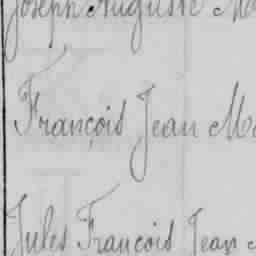 Joseph Auguste M
François Jean Ma
Jules François Jean